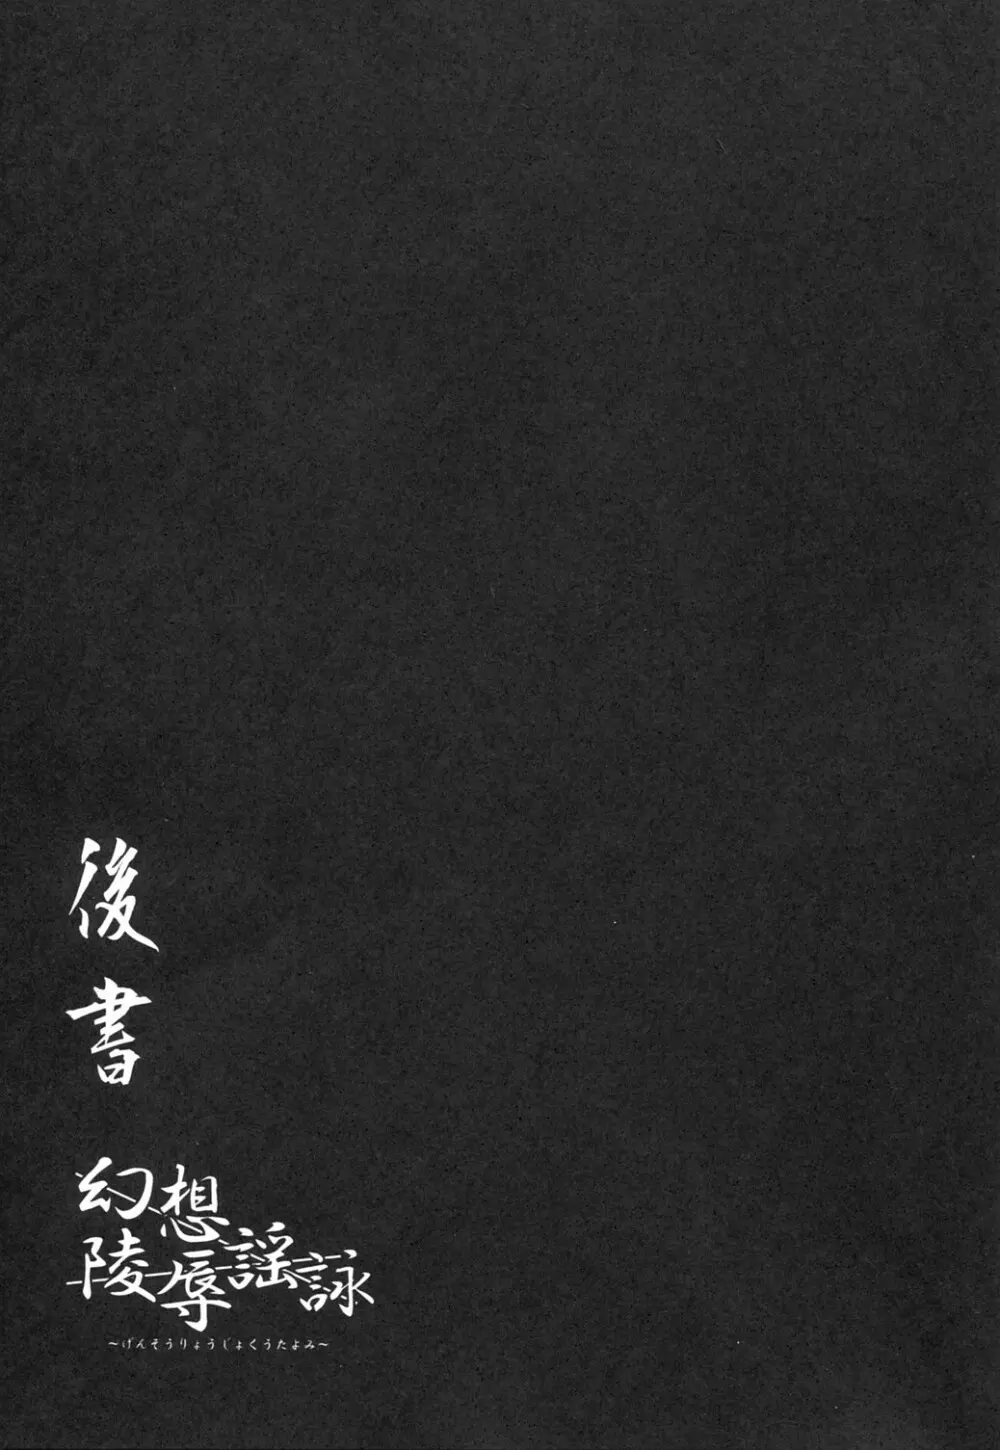 後書
幻想陵辱謡詠
～げんそうりょうじょくうたよみ～